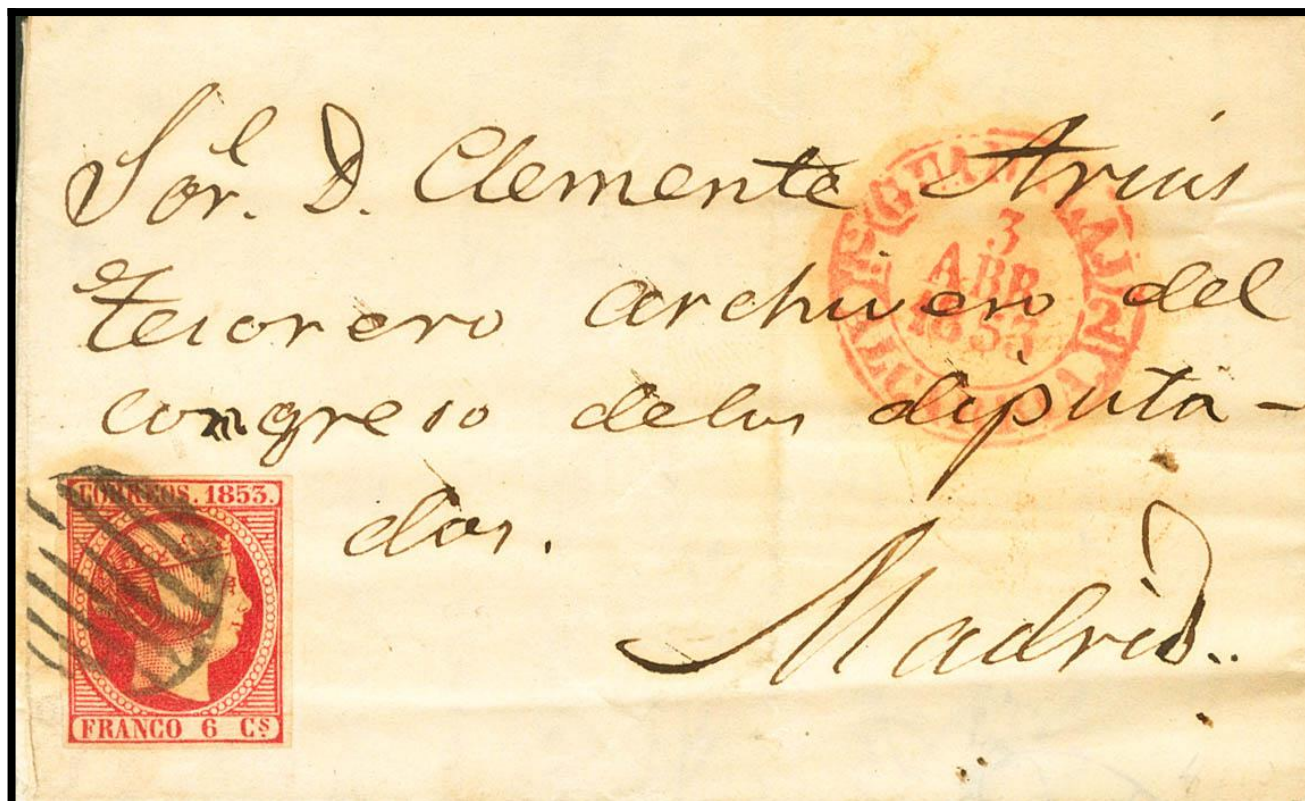 Sor. D. Clemente Arias
tesorero archivero del
congreso delos diputa-
dos.
Madrid..
3
ABR
1853
CORREOS. 1853.
FRANCO 6 Cs